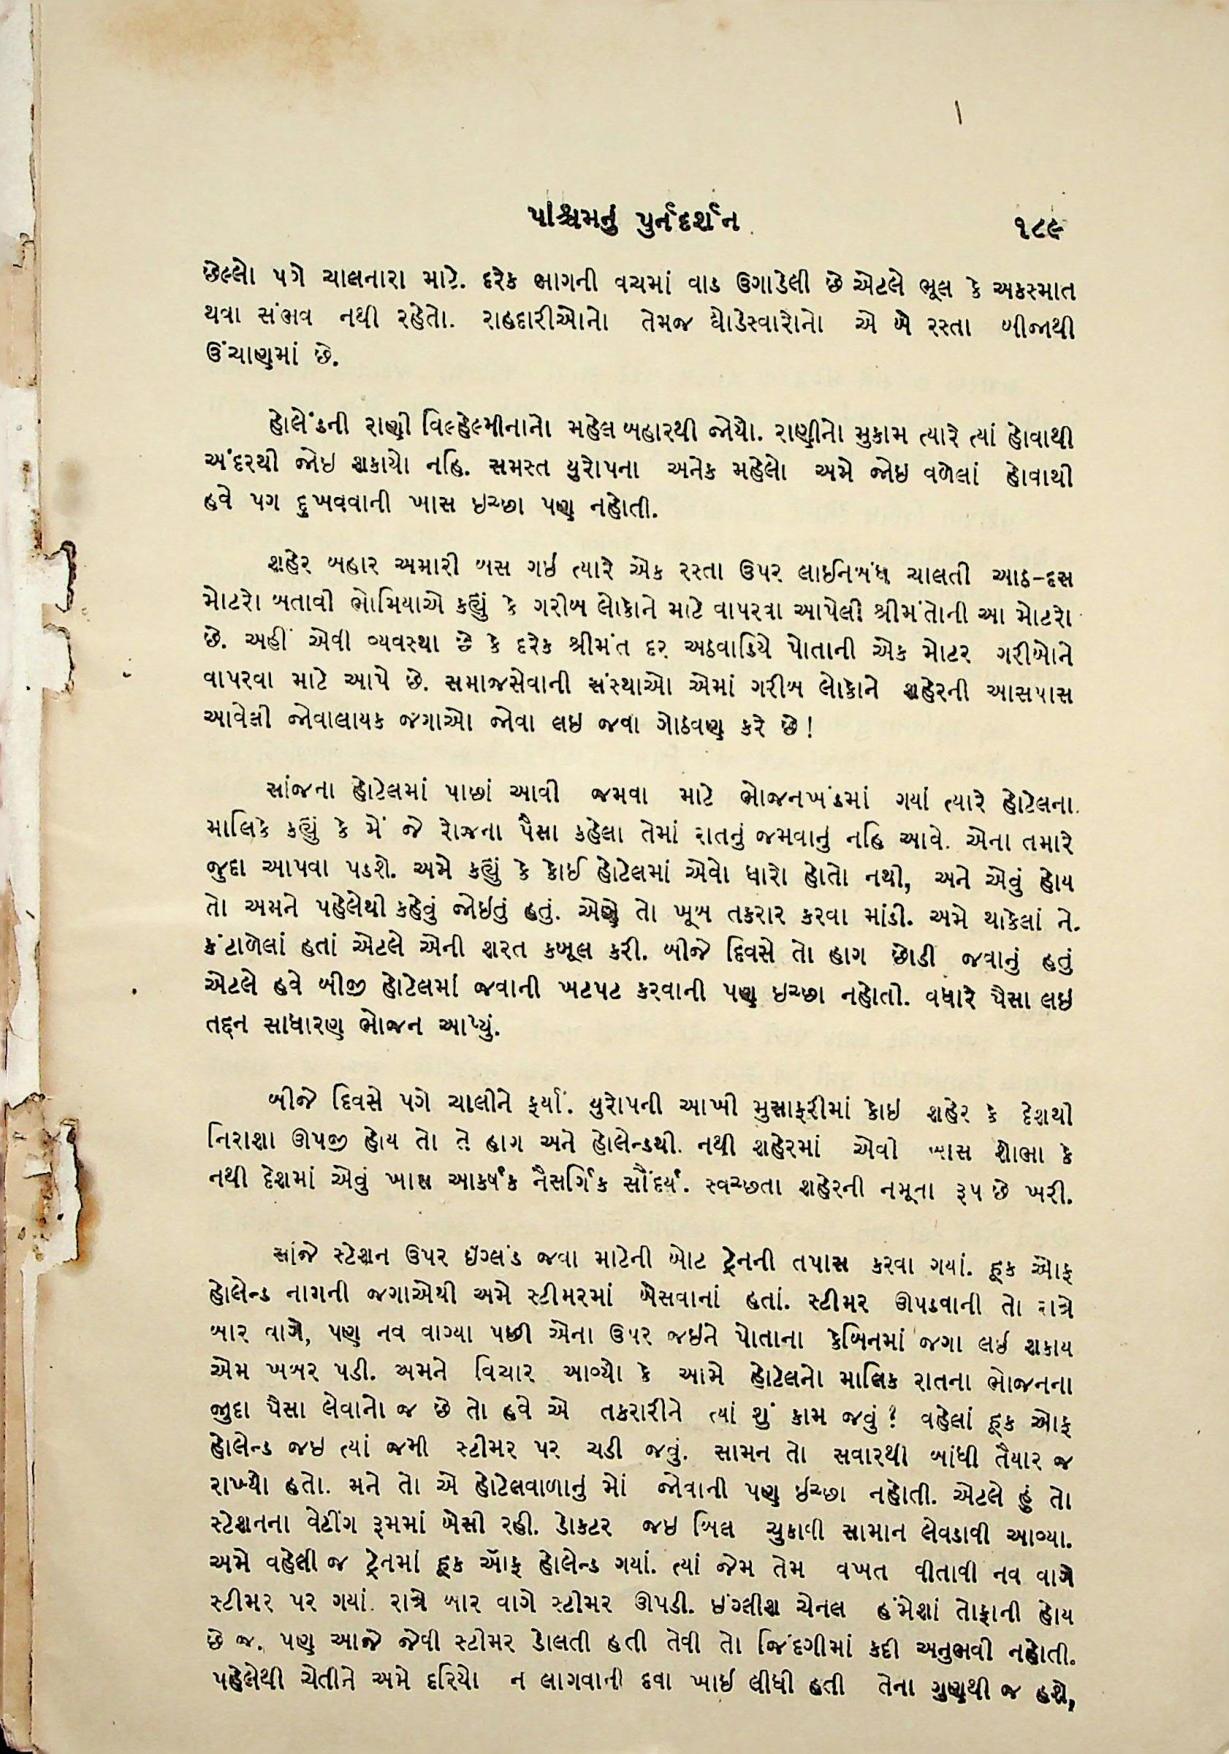 પશ્ચિમનું પુર્નદર્શન
૧૮૯
છેલ્લો પગે ચાલનારા માટે. દરેક ભાગની વચમાં વાડ ઉગાડેલી છે એટલે ભૂલ કે અકસ્માત
થવા સંભવ નથી રહેતો. રાહદારીઓનો તેમજ ઘોડેસ્વારોનો એ બે રસ્તા બીજાથી
ઊંચાણમાં છે.
હોલેંડની રાણી વિલ્હેલ્મીનાનો મહેલ બહારથી જોયો. રાણીનો મુકામ ત્યારે ત્યાં હોવાથી
અંદરથી જોઇ શકાયો નહિ. સમસ્ત યુરોપના અનેક મહેલો અમે જોઇ વળેલાં હોવાથી
હવે પગ દુખવવાની ખાસ ઇચ્છા પણ નહોતી.
શહેર બહાર અમારી બસ ગઇ ત્યારે એક રસ્તા ઉપર લાઇનબંધ ચાલતી આઠ-દસ
મોટરો બતાવી ભોમિયાએ કહ્યું કે ગરીબ લોકોને માટે વાપરવા આપેલી શ્રીમંતોની આ મોટરો
છે. અહીં એવી વ્યવસ્થા છે કે દરેક શ્રીમંત દર અઠવાડિયે પોતાની એક મોટર ગરીબોને
વાપરવા માટે આપે છે. સમાજસેવાની સંસ્થાઓ એમાં ગરીબ લોકોને શહેરની આસપાસ
આવેલી જોવાલાયક જગાઓ જોવા લઇ જવા ગોઠવણ કરે છે!
સાંજના હોટેલમાં પાછાં આવી જમવા માટે ભોજનખંડમાં ગયાં ત્યારે હોટેલના
માલિકે કહ્યું કે મેં જે રોજના પૈસા કહેલા તેમાં રાતનું જમવાનું નહિ આવે. એના તમારે
જુદા આપવા પડશે. અમે કહ્યું કે કોઈ હોટેલમાં એવો ધારો હોતો નથી, અને એવું હોય
તો અમને પહેલેથી કહેવું જોઇતું હતું. એણે તો ખૂબ તકરાર કરવા માંડી. અમે થાકેલાં ને.
કંટાળેલાં હતાં એટલે એની શરત કબૂલ કરી. બીજે દિવસે તો હાગ છોડી જવાનું હતું
એટલે હવે બીજી હોટેલમાં જવાની ખટપટ કરવાની પણ ઇચ્છા નહોતી. વધારે પૈસા લઇ
તદ્દન સાધારણ ભોજન આપ્યું.
બીજે દિવસે પગે ચાલીને ફર્યાં. યુરોપની આખી મુસાફરીમાં કોઇ શહેર કે દેશથી
નિરાશા ઊપજી હોય તો તે હાગ અને હોલેન્ડથી. નથી શહેરમાં એવી ખાસ શોભા કે
નથી દેશમાં એવું ખાસ આકર્ષક નૈસર્ગિક સૌંદર્ય. સ્વચ્છતા શહેરની નમૂના રૂપ છે ખરી.
સાંજે સ્ટેશન ઉપર ઇંગ્લંડ જવા માટેની બોટ ટ્રેનની તપાસ કરવા ગયાં. હૂક ઓફ
હોલેન્ડ નામની જગાએથી અમે સ્ટીમરમાં બેસવાનાં હતાં. સ્ટીમર ઊપડવાની તો રાત્રે
બાર વાગે, પણ નવ વાગ્યા પછી એના ઉપર જઇને પોતાના કેબિનમાં જગા લઇ શકાય
એમ ખબર પડી. અમને વિચાર આવ્યો કે આમે હોટેલનો માલિક રાતના ભોજનના
જુદા પૈસા લેવાનો જ છે તો હવે એ તકરારીને ત્યાં શું કામ જવું? વહેલાં હૂક ઓફ
હોલેન્ડ જઇ ત્યાં જમી સ્ટીમર પર ચડી જવું. સામન તો સવારથી બાંધી તૈયાર જ
રાખ્યો હતો. મને તો એ હોટેલવાળાનું મોં જોવાની પણ ઈચ્છા નહોતી. એટલે હું તો
સ્ટેશનના વેટીંગ રૂમમાં બેસી રહી. ડોકટર જઇ બિલ ચુકાવી સામાન લેવડાવી આવ્યા.
અમે વહેલી જ ટ્રેનમાં હૂક ઑફ હોલેન્ડ ગયાં. ત્યાં જેમ તેમ વખત વીતાવી નવ વાગે
સ્ટીમર પર ગયાં. રાત્રે બાર વાગે સ્ટીમર ઊપડી. ઇંગ્લીશ ચેનલ હંમેશાં તોફાની હોય
છે જ. પણ આજે જેવી સ્ટીમર ડોલતી હતી તેવી તો જિંદગીમાં કદી અનુભવી નહોતી.
પહેલેથી ચેતીને અમે દરિયો ન લાગવાની દવા ખાઇ લીધી હતી તેના ગુણથી જ હશે,